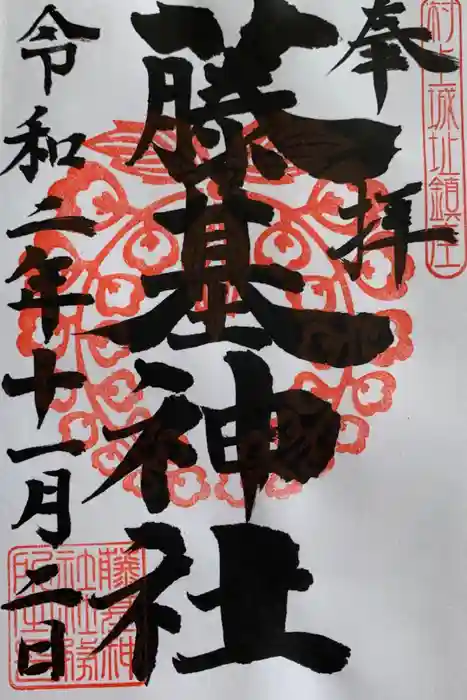 村上城址鎮座
奉拝
藤基神社
令和二年十一月二日
藤基神
社社務
所印